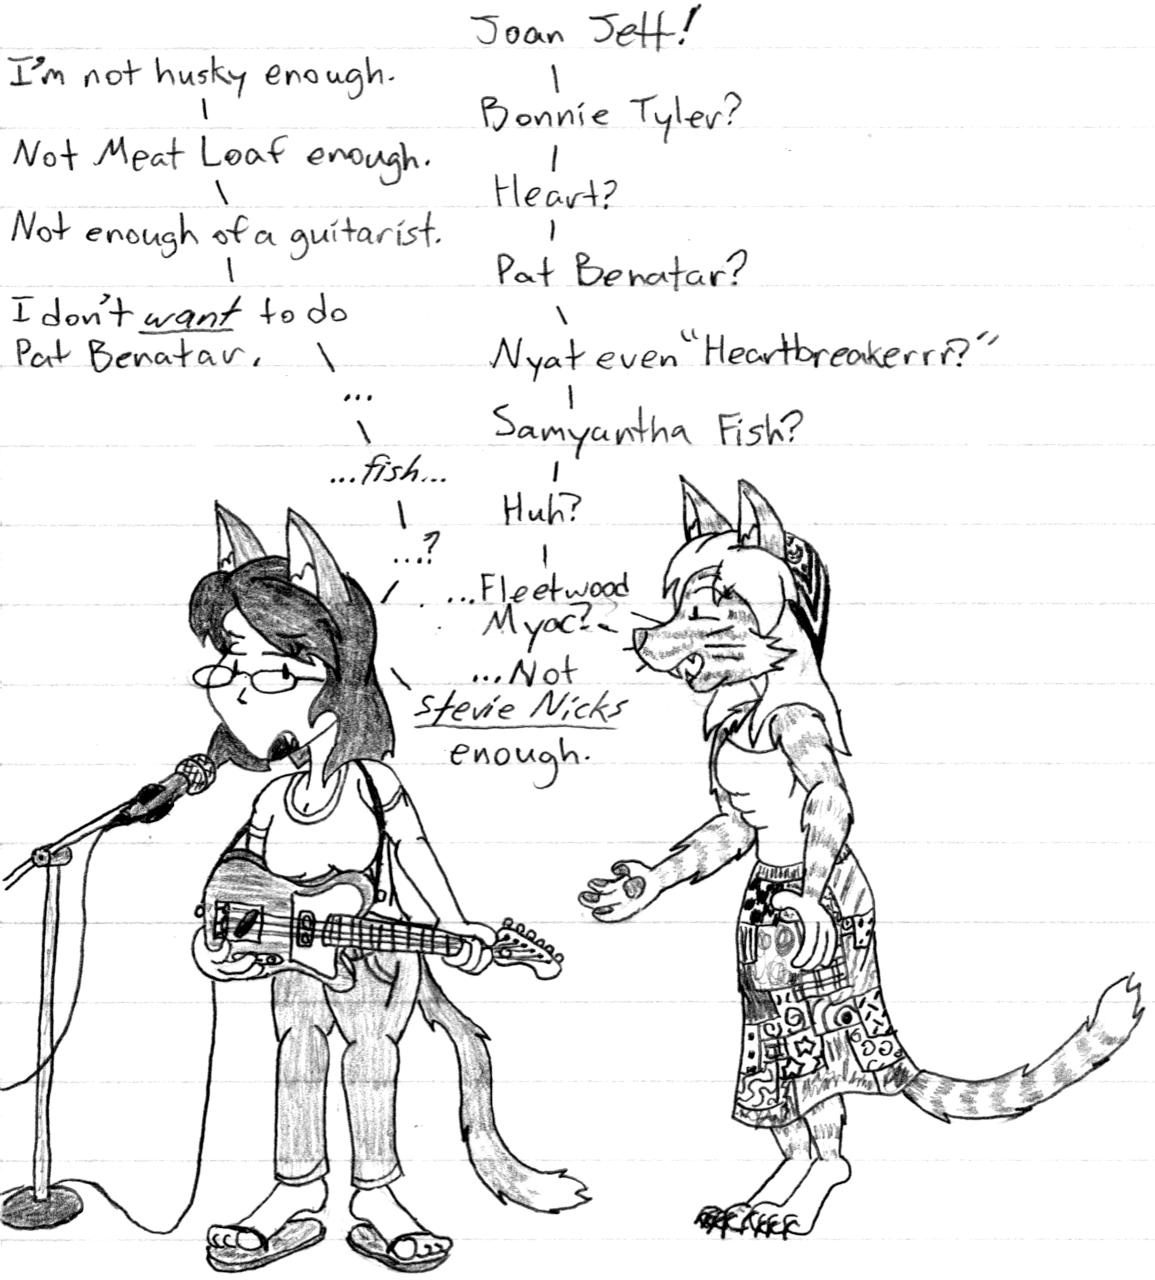 Joan Jett!
I'm not husky enough.
Bonnie Tyler?
Not Meat Loaf enough.
Heart?
Not enough of a guitarist.
Pat Benatar?
I don't want to do
Pat Benatar.
Nyat even "Heartbreakerrr?"
...
Samyantha Fish?
...fish...
Huh?
...?
...Fleetwood
Myac?
...Not
Stevie Nicks
enough.